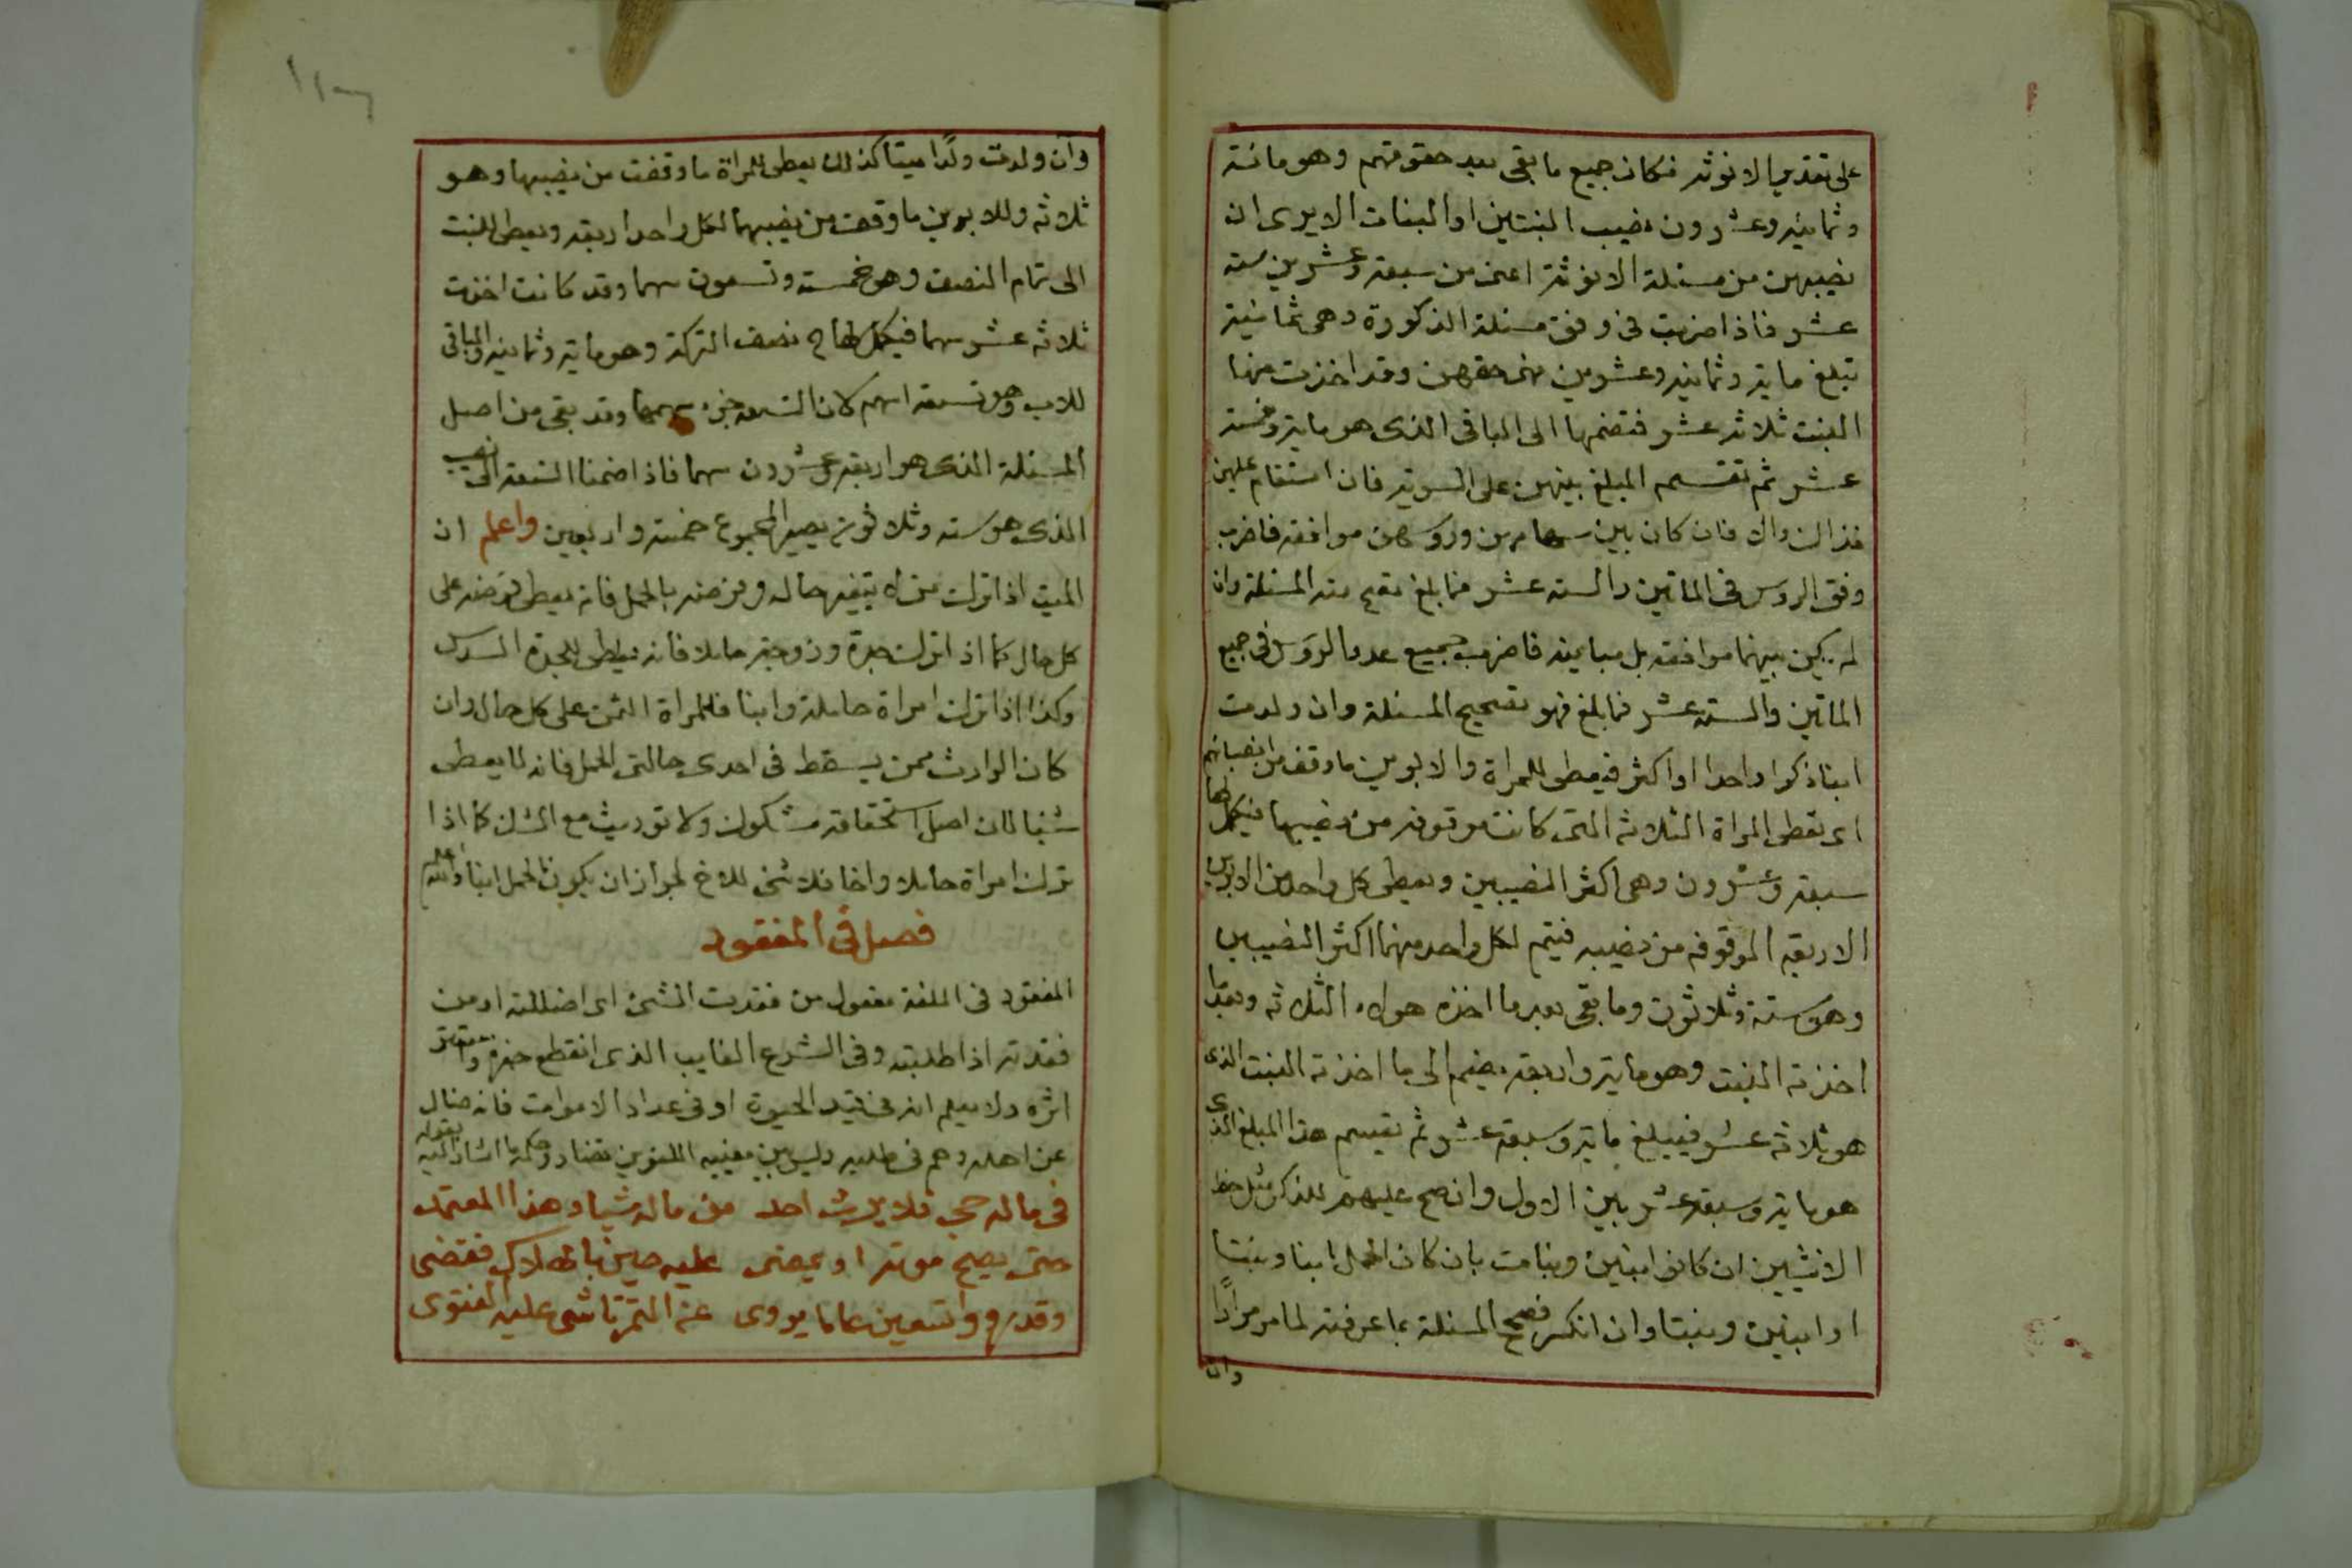 على تقدير الانوثة فكان جميع ما بقى بعد حقوقهم وهو مائة
وثمانية وعشرون نصيب البنتين او البنات الا يرى ان
نصيبهن من مسئلة الانوثة اعنى من سبعة وعشرين ستة
عشر فاذا ضربت فى وفق مسئلة الذكورة وهى ثمانية
تبلغ ماية وثمانية وعشرين فهى حقهن وقد اخذت منها
البنت ثلاثة عشر فتضمها الى الباقى الذى هو ماية وخمسة
عشر ثم تقسم المبلغ بينهن على السوية فان استقام عليهن
فذاك والا فان كان بين سهامهن وروسهن موافقة فاضرب
وفق الروس فى الماتين والستة عشر فما بلغ تصح منه المسئلة وان
لم يكن بينهما موافقة بل مباينة فاضرب جميع عدد الروس فى جميع
الماتين والستة عشر فما بلغ فهو تصحيح المسئلة وان ولدت
ابنا ذكرا واحدا او اكثر فيعطى للمراة والابوين ما وقف من انصبائهم
اى تعطى المراة الثلاثة التى كانت موقوفة من نصيبها فيكمل لها
سبعة وعشرون وهى اكثر النصيبين ويعطى كل واحد من الابوين
الاربعة الموقوفة من نصيبه فيتم لكل واحد منهما اكثر النصيبين
وهو ستة وثلاثون وما بقى بعد ما اخذه هولاء الثلاثة وبعد ما
اخذته البنت وهو ماية واربعة يضم الى ما اخذته البنت الذى
هو ثلاثة عشر فيبلغ ماية وسبعة عشر ثم تقسم هذا المبلغ الذى
هو ماية وسبعة عشر بين الاول وان صح عليهم للذكر مثل حظ
الانثيين ان كانوا ابنين وبنات بان كان الحمل ابنا وبنتا
او ابنين وبنتا وان انكسر فصحح المسئلة بما عرفته لما مر مرارًا
وان
وان ولدت ولدًا ميتا كذلك يعطى للمراة ما وقفت من نصيبها وهو
ثلاثة وللابوين ما وقف من نصيبهما لكل واحد اربعة ويعطى للبنت
الى تمام النصف وهو خمسة وتسعون سهما وقد كانت اخذت
ثلاثة عشر سهما فيكمل لها ح نصف التركة وهو ماية وثمانية والباقى
للاب وهو تسعة اسهم لان التسعة جزء سهمها وقد بقى من اصل
المسئلة الذى هو اربعة وعشرون سهما فاذا ضمنا التسعة الى نصيب
الذى هو ستة وثلاثون يصير المجموع خمسة واربعين واعلم ان
الميت اذا ترك من لا يتغير حاله وفرضه بالحمل فانه يعطى فرضه على
كل حال كما اذا ترك جدة وزوجة حاملا فانه يعطى للجدة السدس
وكذا اذا ترك امراة حاملة وابنا فللمراة الثمن على كل حال وان
كان الوارث ممن يسقط فى احدى حالتى الحمل فانه لا يعطى
شيئا لان اصل استحقاقه مشكوك ولا توريث مع الشك كما اذا
ترك امراة حاملا واخا فلا شئ للاخ لجواز ان يكون الحمل ابنا والله اعلم
فصل فى المفقود
المفقود فى اللغة مفعول من فقدت الشئ اى اضللته او من
فقدته اذا طلبته وفى الشرع الغايب الذى انقطع خبره
اثره ولا يعلم انه فى قيد الحيوة او فى عداد الاموات فانه ضال
عن اهله وهم فى طلبه وليس بين معنييه اللغويين تضاد وحكمه ما اشار اليه بقوله
فى ماله حى فلا يرث احد من ماله شيا وهذا المعتمد
حتى يصح موته او يمضى عليه حين بالهلاك فقضى
وقدروه وتسعين عاما يروى عن التمرتاشى عليه الفتوى